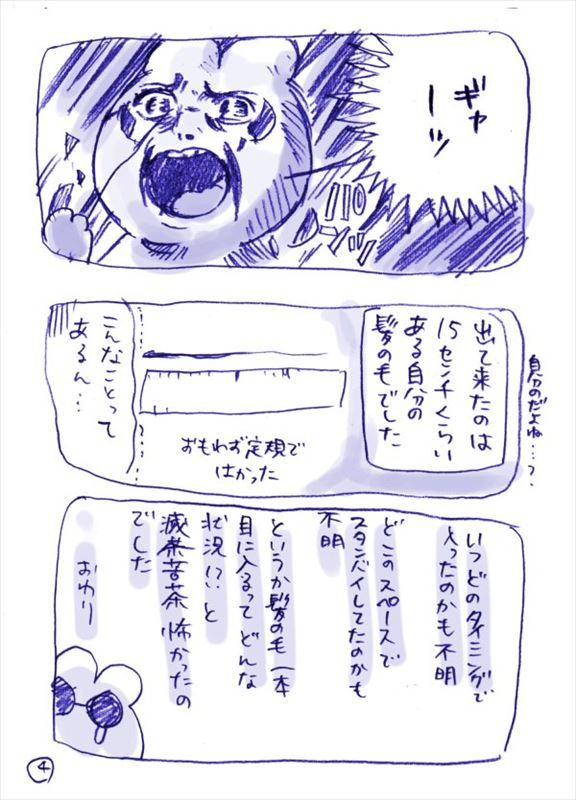 ギャ
ーッ
出て来たのは
15センチくらい
ある自分の
髪の毛でした
自分のだよね…?
おもわず定規で
はかった
こんなことって
あるん…
いつどのタイミングで
入ったのかも不明
どこのスペースで
スタンバイしてたのかも
不明
というか髪の毛一本
目に入るってどんな
状況!?と
滅茶苦茶怖かったの
でした
おわり
4